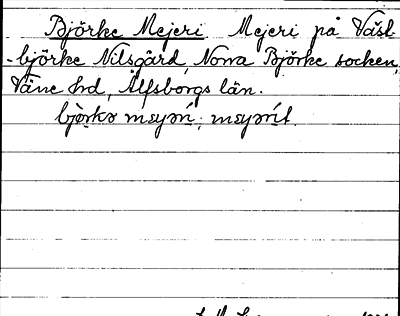 Björke Mejeri. Mejeri på Väst-
-björke Nilsgård, Norra Björke socken,
Väne hd, Älfsborgs län.
bjö̀rkə mɛyərí; mɛyərít.